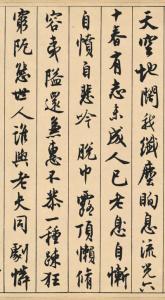 天空地闊我纖塵眴息流光六
十春有志未成人已老自慚
自憤自悲吟 脫巾露頂懶脩
容夷隘還兼惠不恭一種疎狂
窮阨態世人誰與老夫同 劇憐